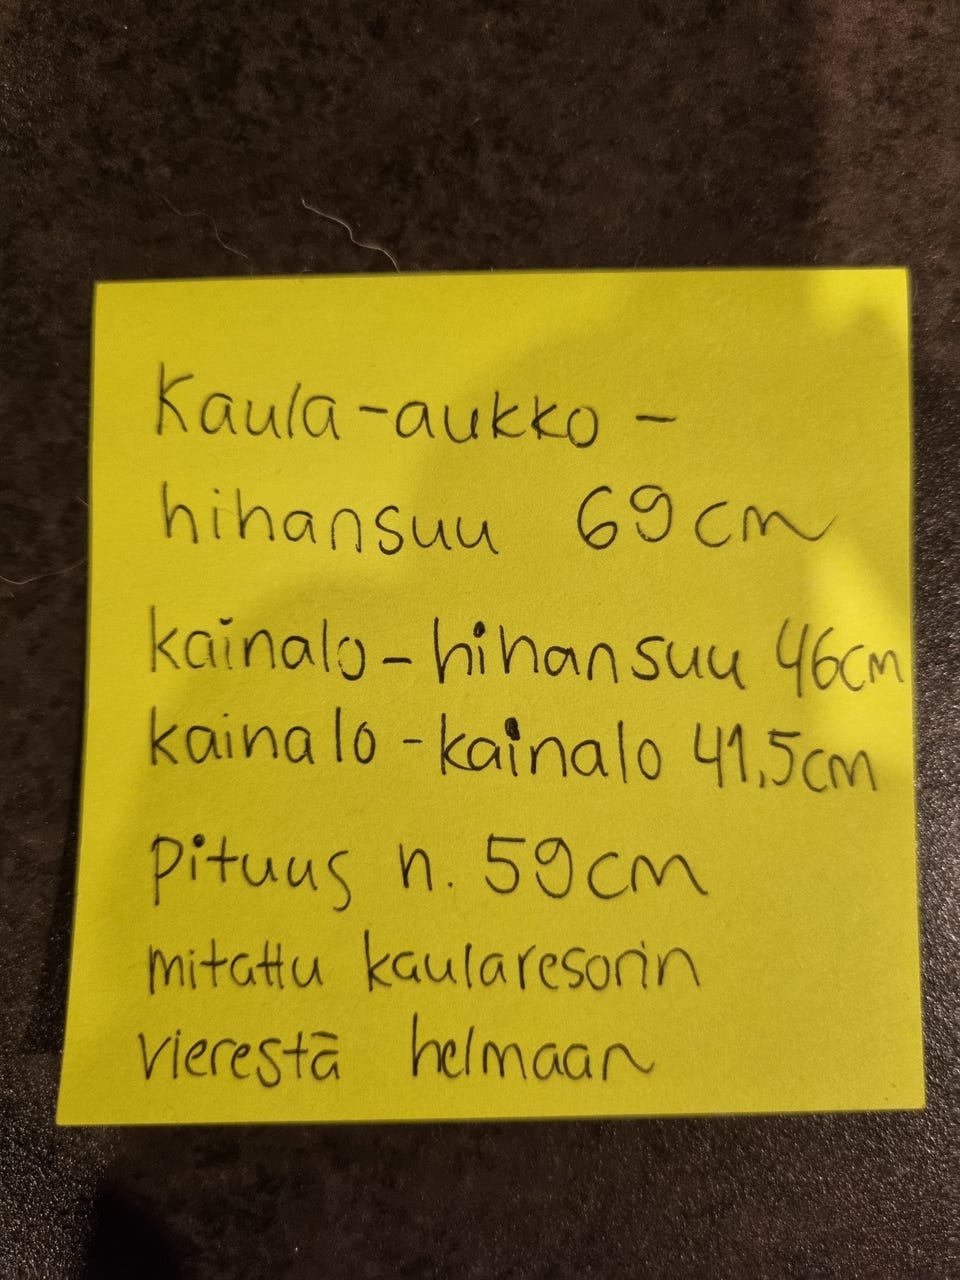 Kaula-aukko -
hihansuu 69cm
kainalo - hihansuu 46cm
kainalo - kainalo 41,5cm
pituus n. 59cm
mitattu kaularesorin
vierestä helmaan